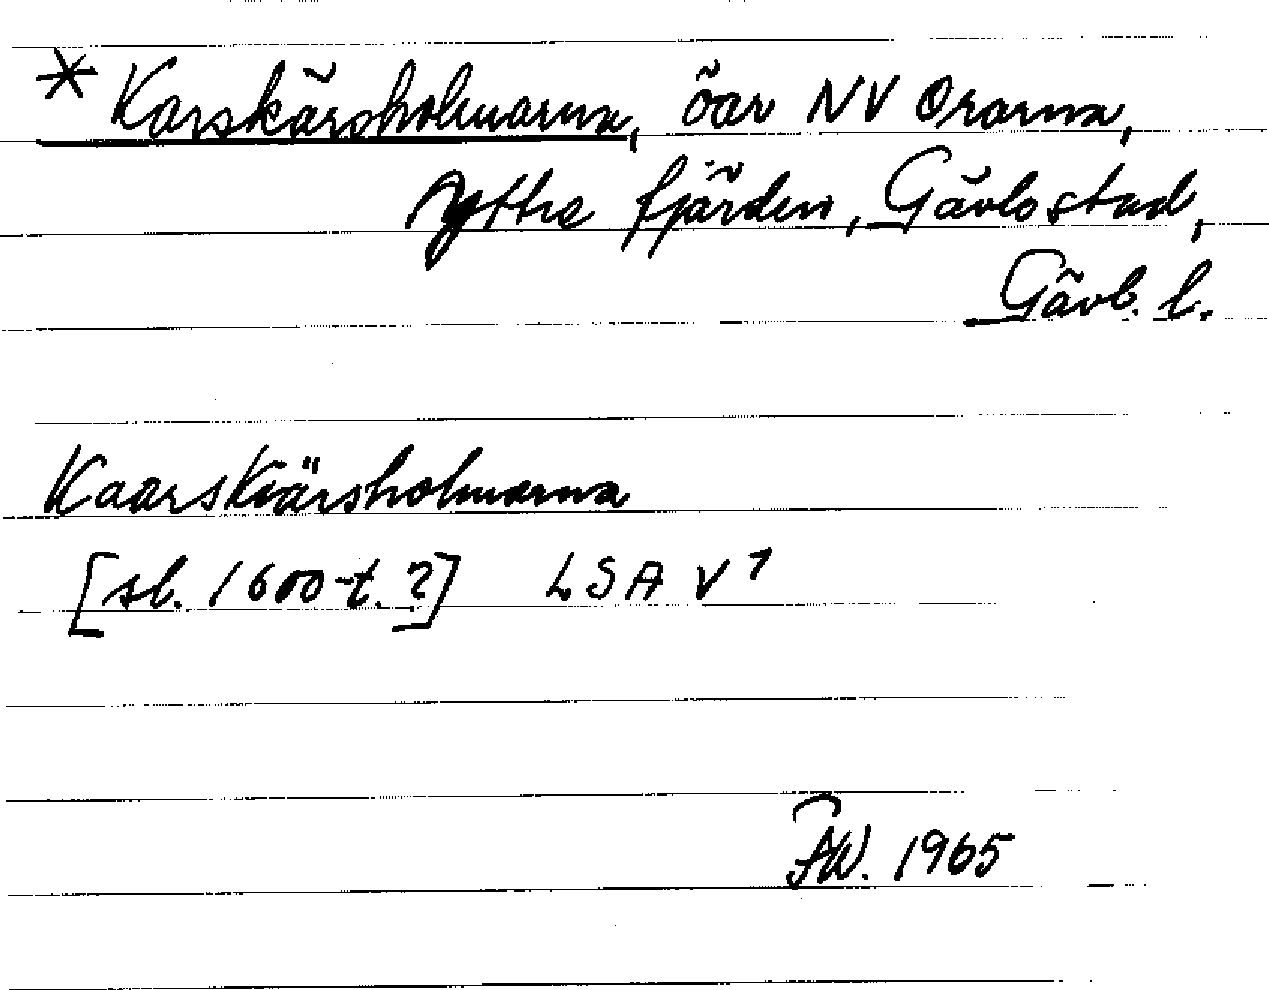 * Karskärsholmarna, öar NV Orarna,
Yttre fjärden, Gävle stad,
Gävb. l.
Kaarskiärsholmarna
[sl. 1600-t. ?] LSA V 1
FW. 1965